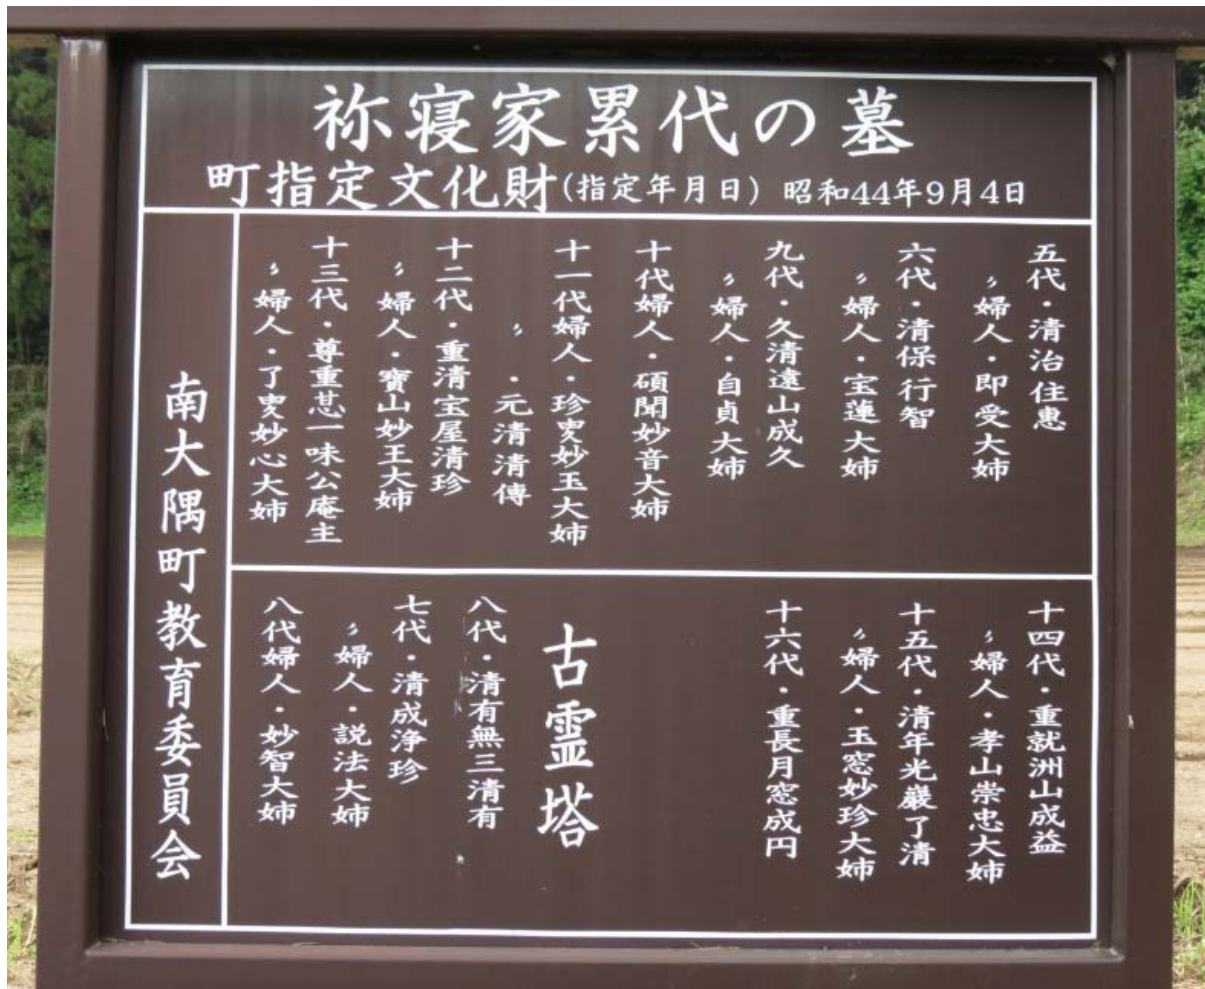 祢寝家累代の墓
町指定文化財(指定年月日) 昭和44年9月4日
五代・清治住惠
〃婦人・即受大姉
六代・清保行智
〃婦人・宝蓮大姉
九代・久清遠山成久
〃婦人・自貞大姉
十代婦人・碩聞妙音大姉
十一代婦人・珍叟妙玉大姉
〃・元清清傳
十二代・重清宝屋清珍
〃婦人・寶山妙王大姉
十三代・尊重恝一味公庵主
〃婦人・了叟妙心大姉
十四代・重就洲山成益
〃婦人・孝山崇忠大姉
十五代・清年光巖了清
〃婦人・玉窓妙珍大姉
十六代・重長月窓成円
古霊塔
八代・清有無三清有
七代・清成浄珍
〃婦人・説法大姉
八代婦人・妙智大姉
南大隅町教育委員会